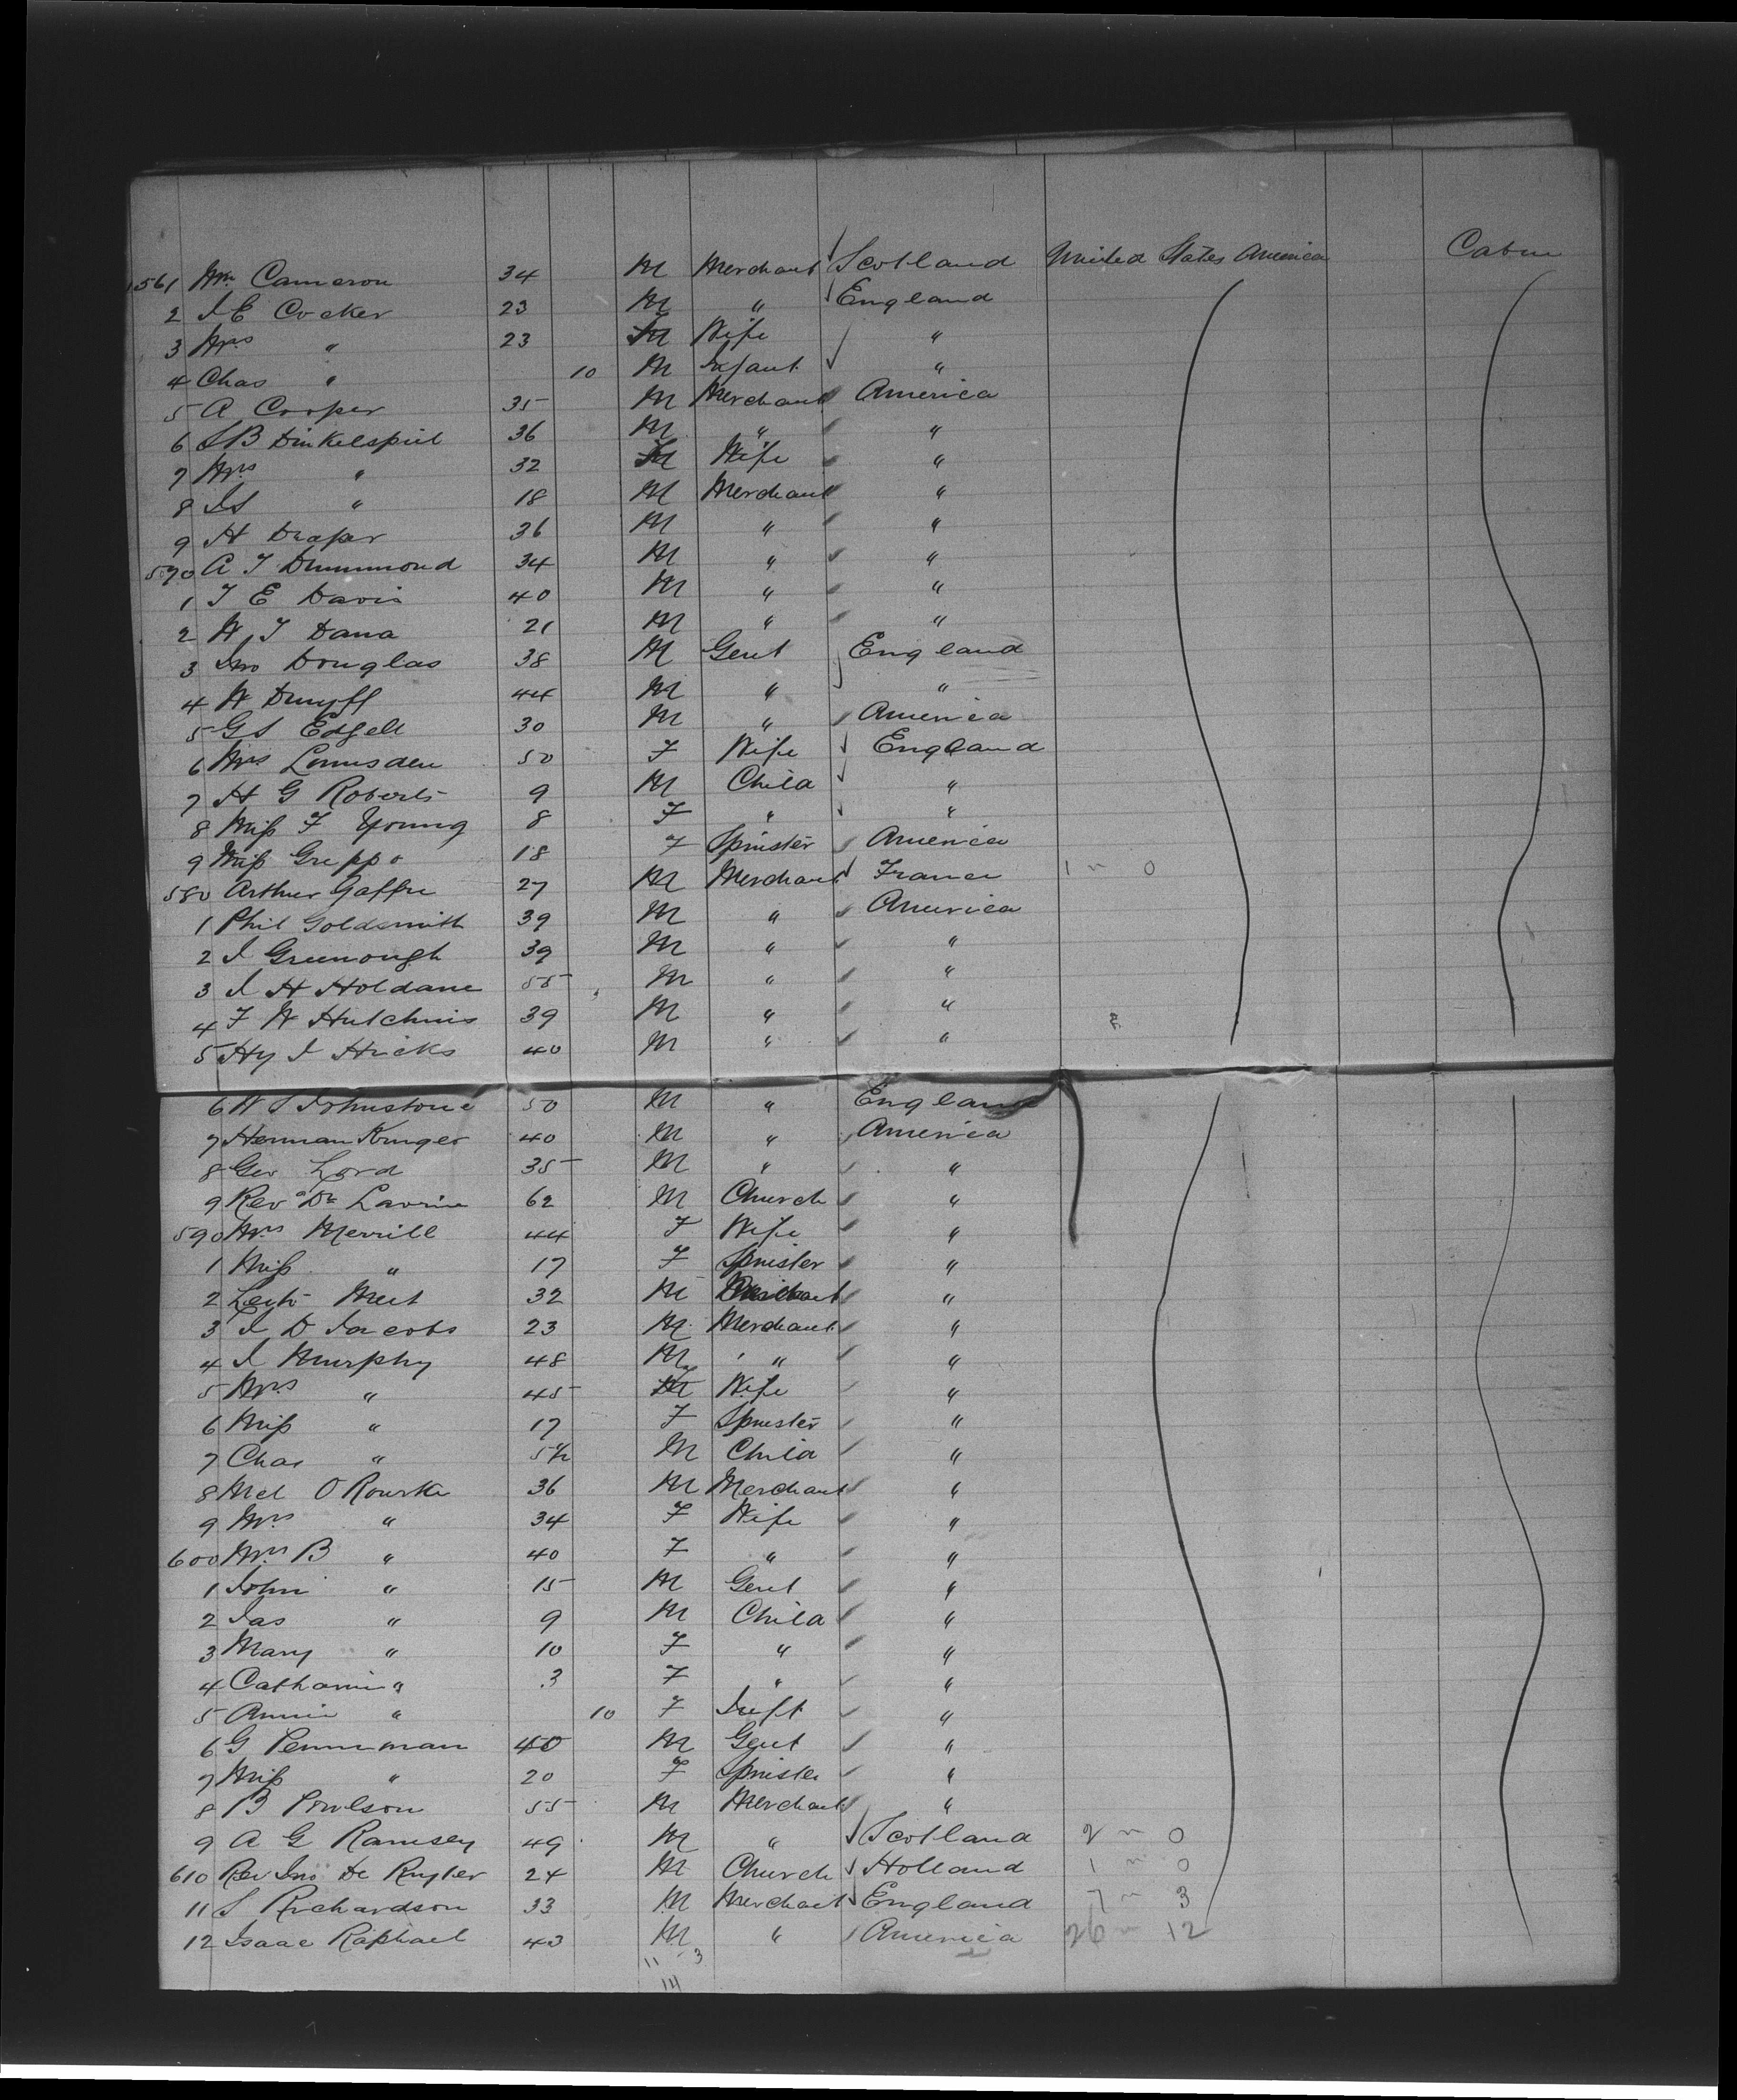 561 Wm Cameron 34 M Merchant Scotland United States America Cabin
2 J E Cocker 23 M " England
3 Mrs " 23 F Wife "
4 Chas " 10 M Infant "
5 A Cooper 35 M Merchant America
6 S B Dinkelspiel 36 M " "
7 Mrs " 32 F Wife "
8 " 18 M Merchant "
9 H Draper 36 M " "
570 A T Drummond 34 M " "
1 T E Davis 40 M " "
2 W T Dana 21 M " "
3 Jno Douglas 38 M Gent England
4 W 44 M " "
5 G S Edgell 30 M " America
6 Mrs Lumsden 50 F Wife England
7 H G Roberts 9 M Child "
8 Miss F Young 8 F " "
9 Miss Greppo 18 F Spinster America
580 Arthur Gaffre 27 M Merchant France 1 " 0
1 Phil Goldsmith 39 M " America
2 J Greenough 39 M " "
3 J H Holdane 55 M " "
4 F W Hutchins 39 M " "
5 Hy J Hicks 40 M " "
6 W S Johnstone 50 M " England
7 Herman Kruger 40 M " America
8 Geo Lord 35 M " "
9 Rev Dr 62 M Church "
590 Mrs Merrill 44 F Wife "
1 Miss " 17 F Spinster "
2 32 M "
3 J D Jacobs 23 M Merchant "
4 J Murphy 48 M " "
5 Mrs " 45 F Wife "
6 Miss " 17 F Spinster "
7 Chas " 5½ M Child "
8 Mcl O Rourke 36 M Merchant "
9 Mrs " 34 F Wife "
600 Mrs B " 40 F " "
1 John " 15 M Gent "
2 Jas " 9 M Child "
3 Mary " 10 F " "
4 Catharine " 3 F " "
5 Annie " 10 F Inft "
6 G Penniman 40 M Gent "
7 Miss " 20 F Spinster "
8 B Poulson 55 M Merchant "
9 A G Ramsey 49 M " Scotland 2 " 0
610 Rev Jno De Ruyter 24 M Church Holland 1 " 0
11 S Richardson 33 M Merchant England 7 " 3
12 Isaac Raphael 43 M " America 26 " 12
11 3
14